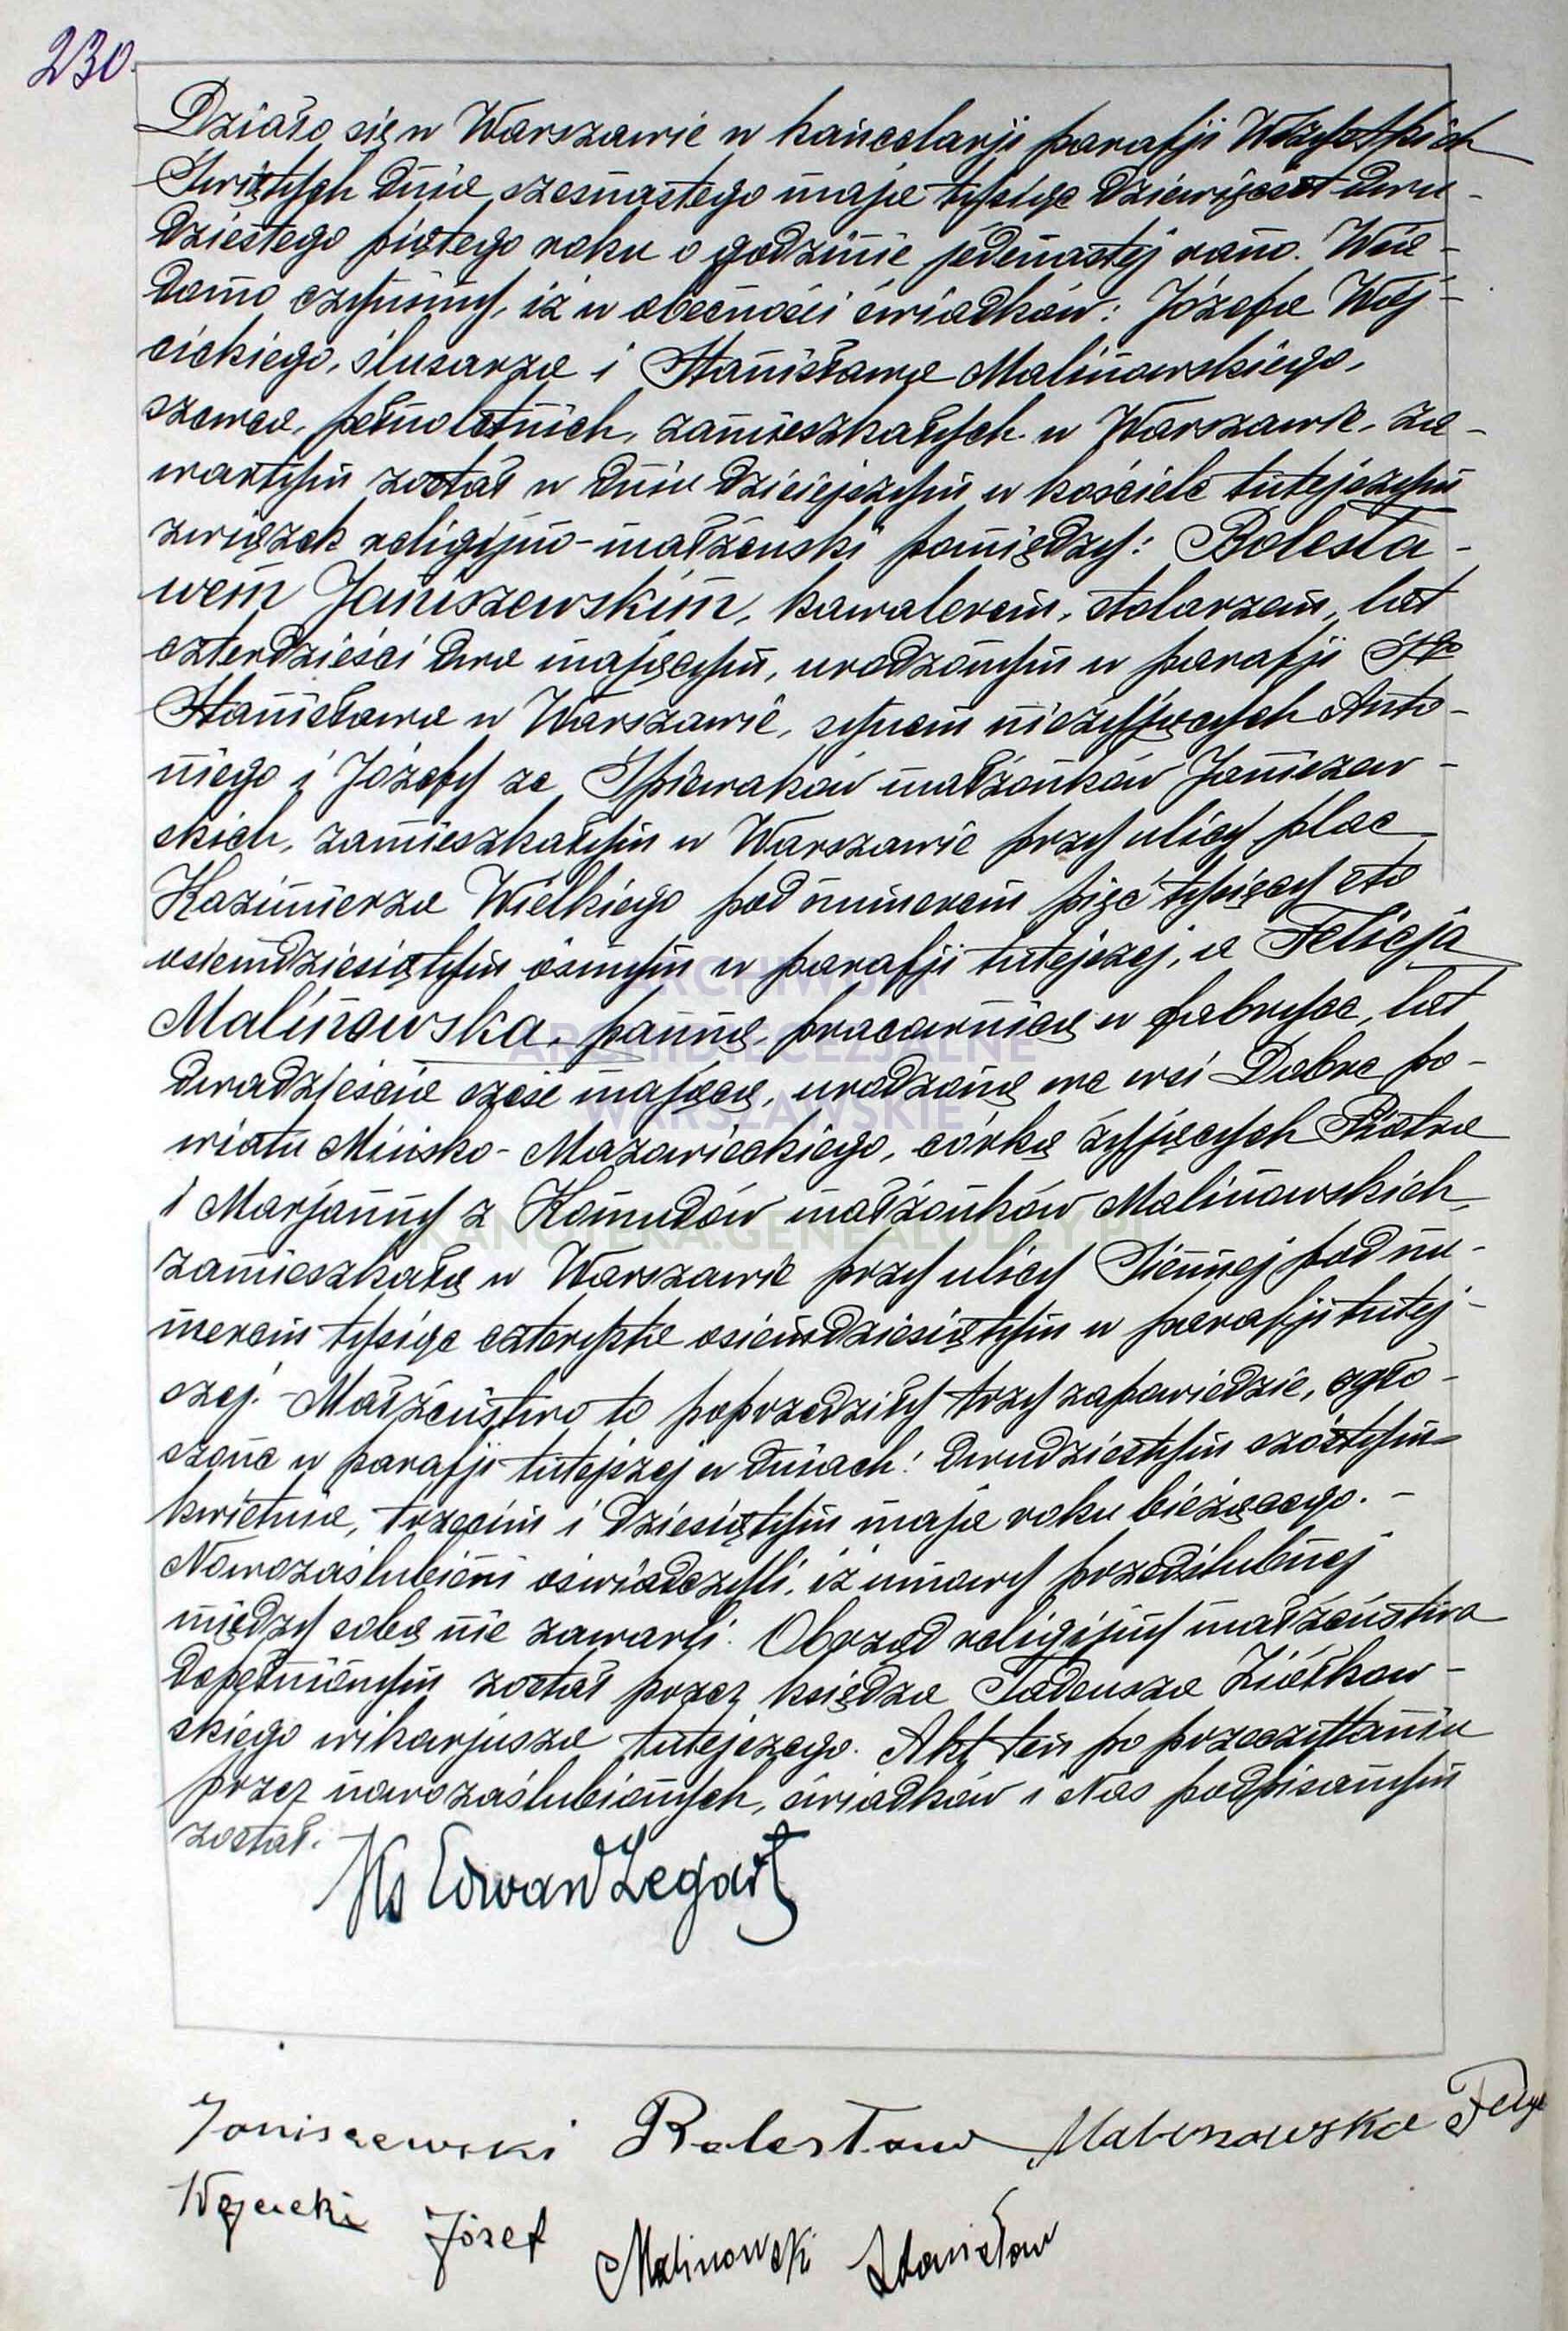 230.
Działo się w Warszawie w kancelarji parafji Wszystkich
Świętych dnia szesnastego maja tysiąc dziewięćset dwu-
dziestego piątego roku o godzinie jedenastej rano. Wia-
domo czynimy, iż w obecności świadków: Józefa Wój-
cickiego, ślusarza i Stanisława Malinowskiego,
szewca, pełnoletnich, zamieszkałych w Warszawie, za-
wartym został w dniu dzisiejszym w kościele tutejszym
związek religijno-małżeński pomiędzy: Bolesła-
wem Janiszewskim, kawalerem, stolarzem, lat
czterdzieści dwa mającym, urodzonym w parafji Sgo
Stanisława w Warszawie, synem nieżyjących Anto-
niego i Józefy ze Śpiewaków małżonków Janiszew-
skich, zamieszkałym w Warszawie przy ulicy plac
Kazimierza Wielkiego pod numerem pięć tysięcy sto
osiemdziesiątym ósmym w parafji tutejszej, a Felicją
Malinowską, panną, pracownicą w fabryce, lat
dwadzieścia sześć mającą, urodzoną we wsi Dobre po-
wiatu Mińsko-Mazowieckiego, córką żyjących Piotra
i Marjanny z Komudów małżonków Malinowskich,
zamieszkałą w Warszawie przy ulicy Siennej pod nu-
merem tysiąc czterysta osiemdziesiątym w parafji tutej-
szej. - Małżeństwo to poprzedziły trzy zapowiedzie, ogło-
szone w parafji tutejszej w dniach: dwudziestym szóstym
kwietnia, trzecim i dziesiątym maja roku bieżącego. -
Nowozaślubieni oświadczyli, iż umowy przedślubnej
między sobą nie zawarli. Obrząd religijny małżeństwa
dopełnionym został przez księdza Tadeusza Ziółkow-
skiego wikarjusza tutejszego. Akt ten po przeczytaniu
przez nowozaślubionych, świadków i Nas podpisanym
został.
Ks Edward Żegart
Janiszewski Bolesław Malinowska
Wojcicki Józef Malinowski Stanisław
ARCHIWUM
ARCHIDIECEZJALNE
WARSZAWSKIE
SKANOTEKA.GENEALODZY.PL